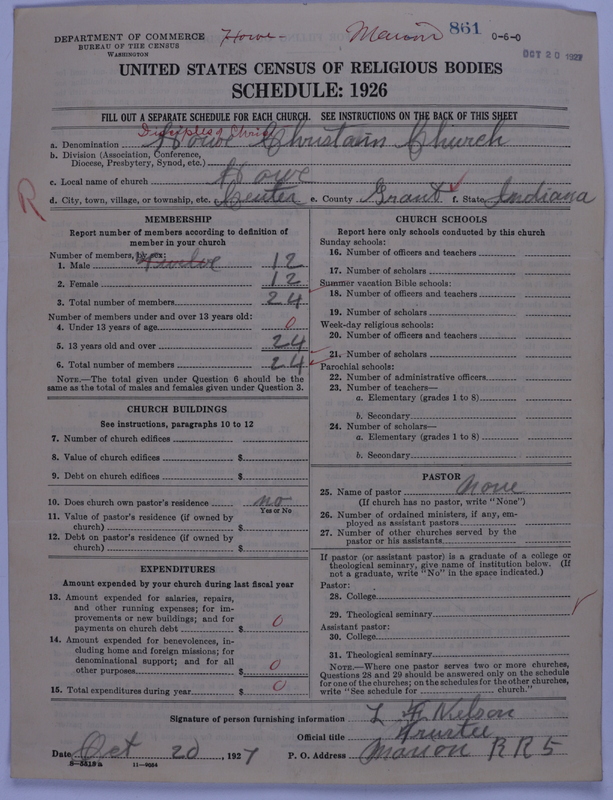 DEPARTMENT OF COMMERCE
BUREAU OF THE CENSUS
WASHINGTON
Howe
Marion
861
0-6-0
OCT 20 1927
UNITED STATES CENSUS OF RELIGIOUS BODIES
SCHEDULE: 1926
FILL OUT A SEPARATE SCHEDULE FOR EACH CHURCH. SEE INSTRUCTIONS ON THE BACK OF THIS SHEET
Disciples of Christ
a. Denomination Howe Christain Church
b. Division (Association, Conference,
Diocese, Presbytery, Synod, etc.)
c. Local name of church Howe
d. City, town, village, or township, etc. Center e. County Grant f. State Indiana
R
MEMBERSHIP
Report number of members according to definition of
member in your church
Number of members, by sex:
1. Male Twelve 12
2. Female 12
3. Total number of members 24
Number of members under and over 13 years old:
4. Under 13 years of age 0
5. 13 years old and over 24
6. Total number of members 24
NOTE.—The total given under Question 6 should be
same as the total of males and females given under Question 3.
CHURCH BUILDINGS
See instructions, paragraphs 10 to 12
7. Number of church edifices
8. Value of church edifices $
9. Debt on church edifices $
10. Does church own pastor's residence no
Yes or No
11. Value of pastor's residence (if owned by
church) $
12. Debt on pastor's residence (if owned by
church) $
EXPENDITURES
Amount expended by your church during last fiscal year
13. Amount expended for salaries, repairs,
and other running expenses; for im-
provements or new buildings; and for
payments on church debt $ 0
14. Amount expended for benevolences, in-
cluding home and foreign missions; for
denominational support; and for all
other purposes $ 0
15. Total expenditures during year $ 0
CHURCH SCHOOLS
Report here only schools conducted by this church
Sunday schools:
16. Number of officers and teachers
17. Number of scholars
Summer vacation Bible schools:
18. Number of officers and teachers
19. Number of scholars
Week-day religious schools:
20. Number of officers and teachers
21. Number of scholars
Parochial schools:
22. Number of administrative officers
23. Number of teachers—
a. Elementary (grades 1 to 8)
b. Secondary
24. Number of scholars—
a. Elementary (grades 1 to 8)
b. Secondary
PASTOR
25. Name of pastor None
(If church has no pastor, write "None")
26. Number of ordained ministers, if any, em-
ployed as assistant pastors
27. Number of other churches served by the
pastor or his assistants
If pastor (or assistant pastor) is a graduate of a college or
theological seminary, give name of institution below. (If
not a graduate, write "No" in the space indicated.)
Pastor:
28. College
29. Theological seminary
Assistant pastor:
30. College
31. Theological seminary
NOTE.—Where one pastor serves two or more churches,
Questions 28 and 29 should be answered only on the schedule
for one of the churches; on the schedules for the other churches,
write "See schedule for church."
Signature of person furnishing information L. F. Nielson
Official title Trustee
Date Oct 20, 1927 P. O. Address Marion R R 5
8-5513a 11-9034